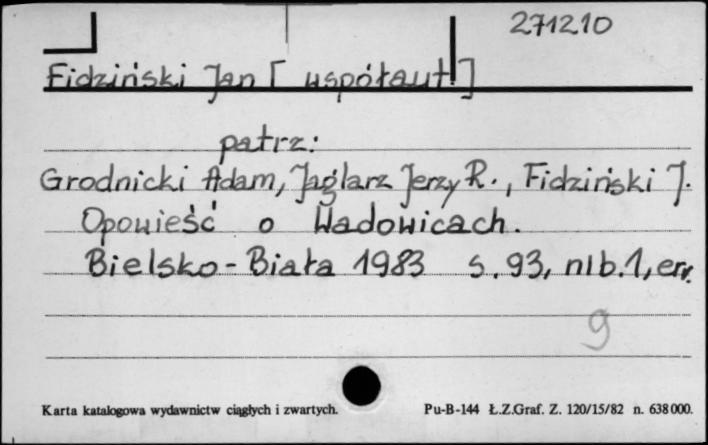 271210
Fidziński Jan [współaut.]
patrz:
Grodnicki Adam, Jaglarz Jerzy R., Fidziński J.
Opowieść o Wadowicach.
Bielsko-Biała 1983 s. 93, nlb. 1, err.
9
Karta katalogowa wydawnictw ciągłych i zwartych. Pu-B-144 Ł.Z.Graf. Z. 120/15/82 n. 638 000.